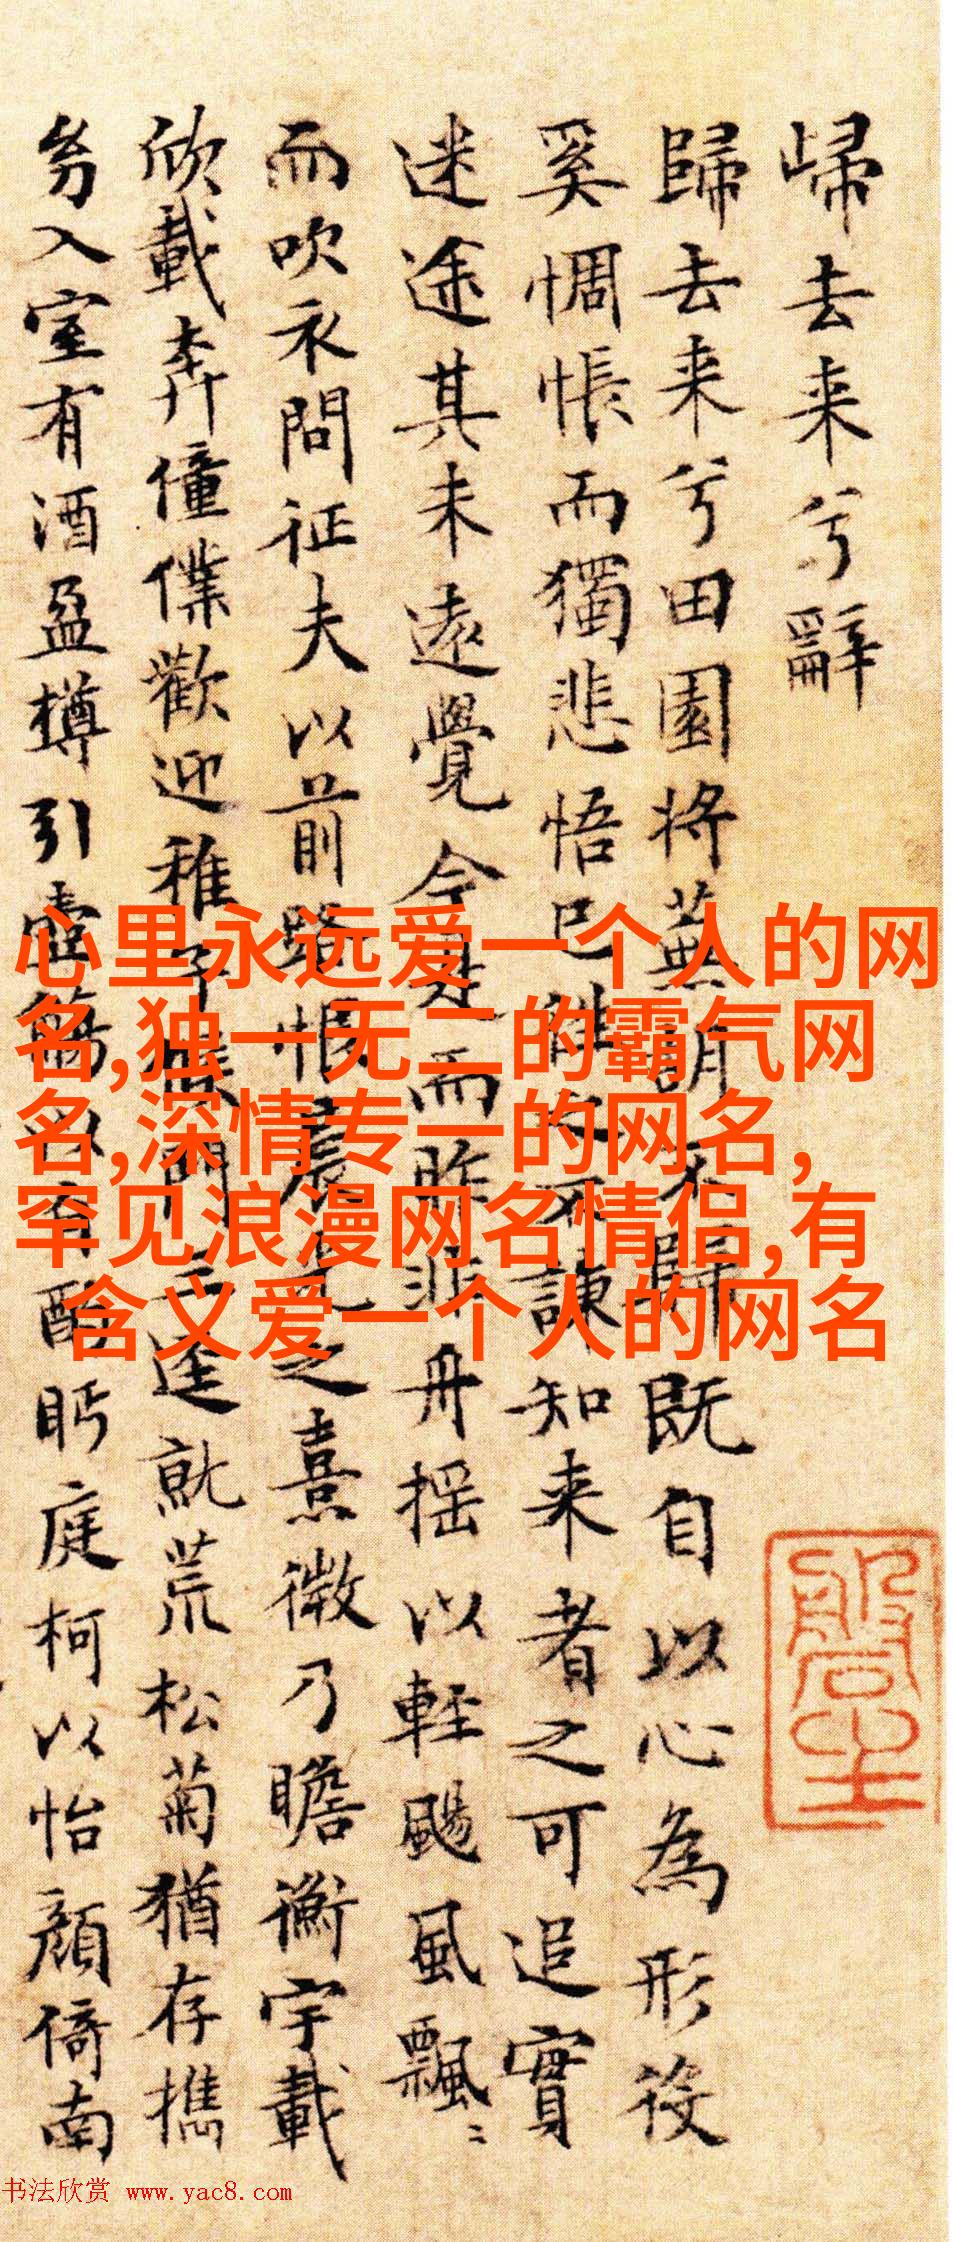 歸去来兮辭
歸去来兮田園将蕪胡不歸既自以心為形役
奚惆悵而獨悲悟已往之不諫知来者之可追實
迷途其未遠覺今是而昨非舟摇以輕颺風飄〻
而吹衣問征夫以前路恨晨光之熹微乃瞻衡宇載
欣載奔僮僕歡迎稚子候門三逕就荒松菊猶存攜
幼入室有酒盈樽引壺觴以自酌眄庭柯以怡顔倚南
心里永远爱一个人的网
名,独一无二的霸气网
名,深情专一的网名,
罕见浪漫网名情侣,有
含义爱一个人的网名
书法欣赏 www.yac8.com